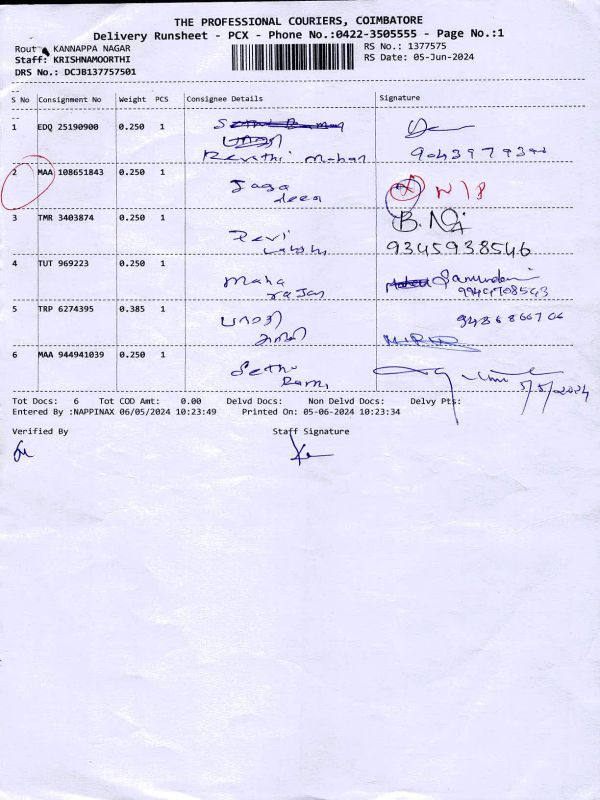 THE PROFESSIONAL COURIERS, COIMBATORE
Delivery Runsheet - PCX - Phone No.:0422-3505555 - Page No.:1
Rout KANNAPPA NAGAR
Staff: KRISHNAMOORTHI
DRS No.: DCJB137757501
RS No.: 1377575
RS Date: 05-Jun-2024
S No Consignment No Weight PCS Consignee Details Signature
1 EDQ 25190900 0.250 1
Revathi Mohan
2 MAA 108651843 0.250 1 Jaga
deea
3 TMR 3403874 0.250 1 B.
Revi 9345938546
4 TUT 969223 0.250 1 Maha
rajan 9944708543
5 TRP 6274395 0.385 1
6 MAA 944941039 0.250 1 Sethu
Ram 5/5/2024
Tot Docs: 6 Tot COD Amt: 0.00 Delvd Docs: Non Delvd Docs: Delvy Pts:
Entered By :NAPPINAX 06/05/2024 10:23:49 Printed On: 05-06-2024 10:23:34
Verified By Staff Signature